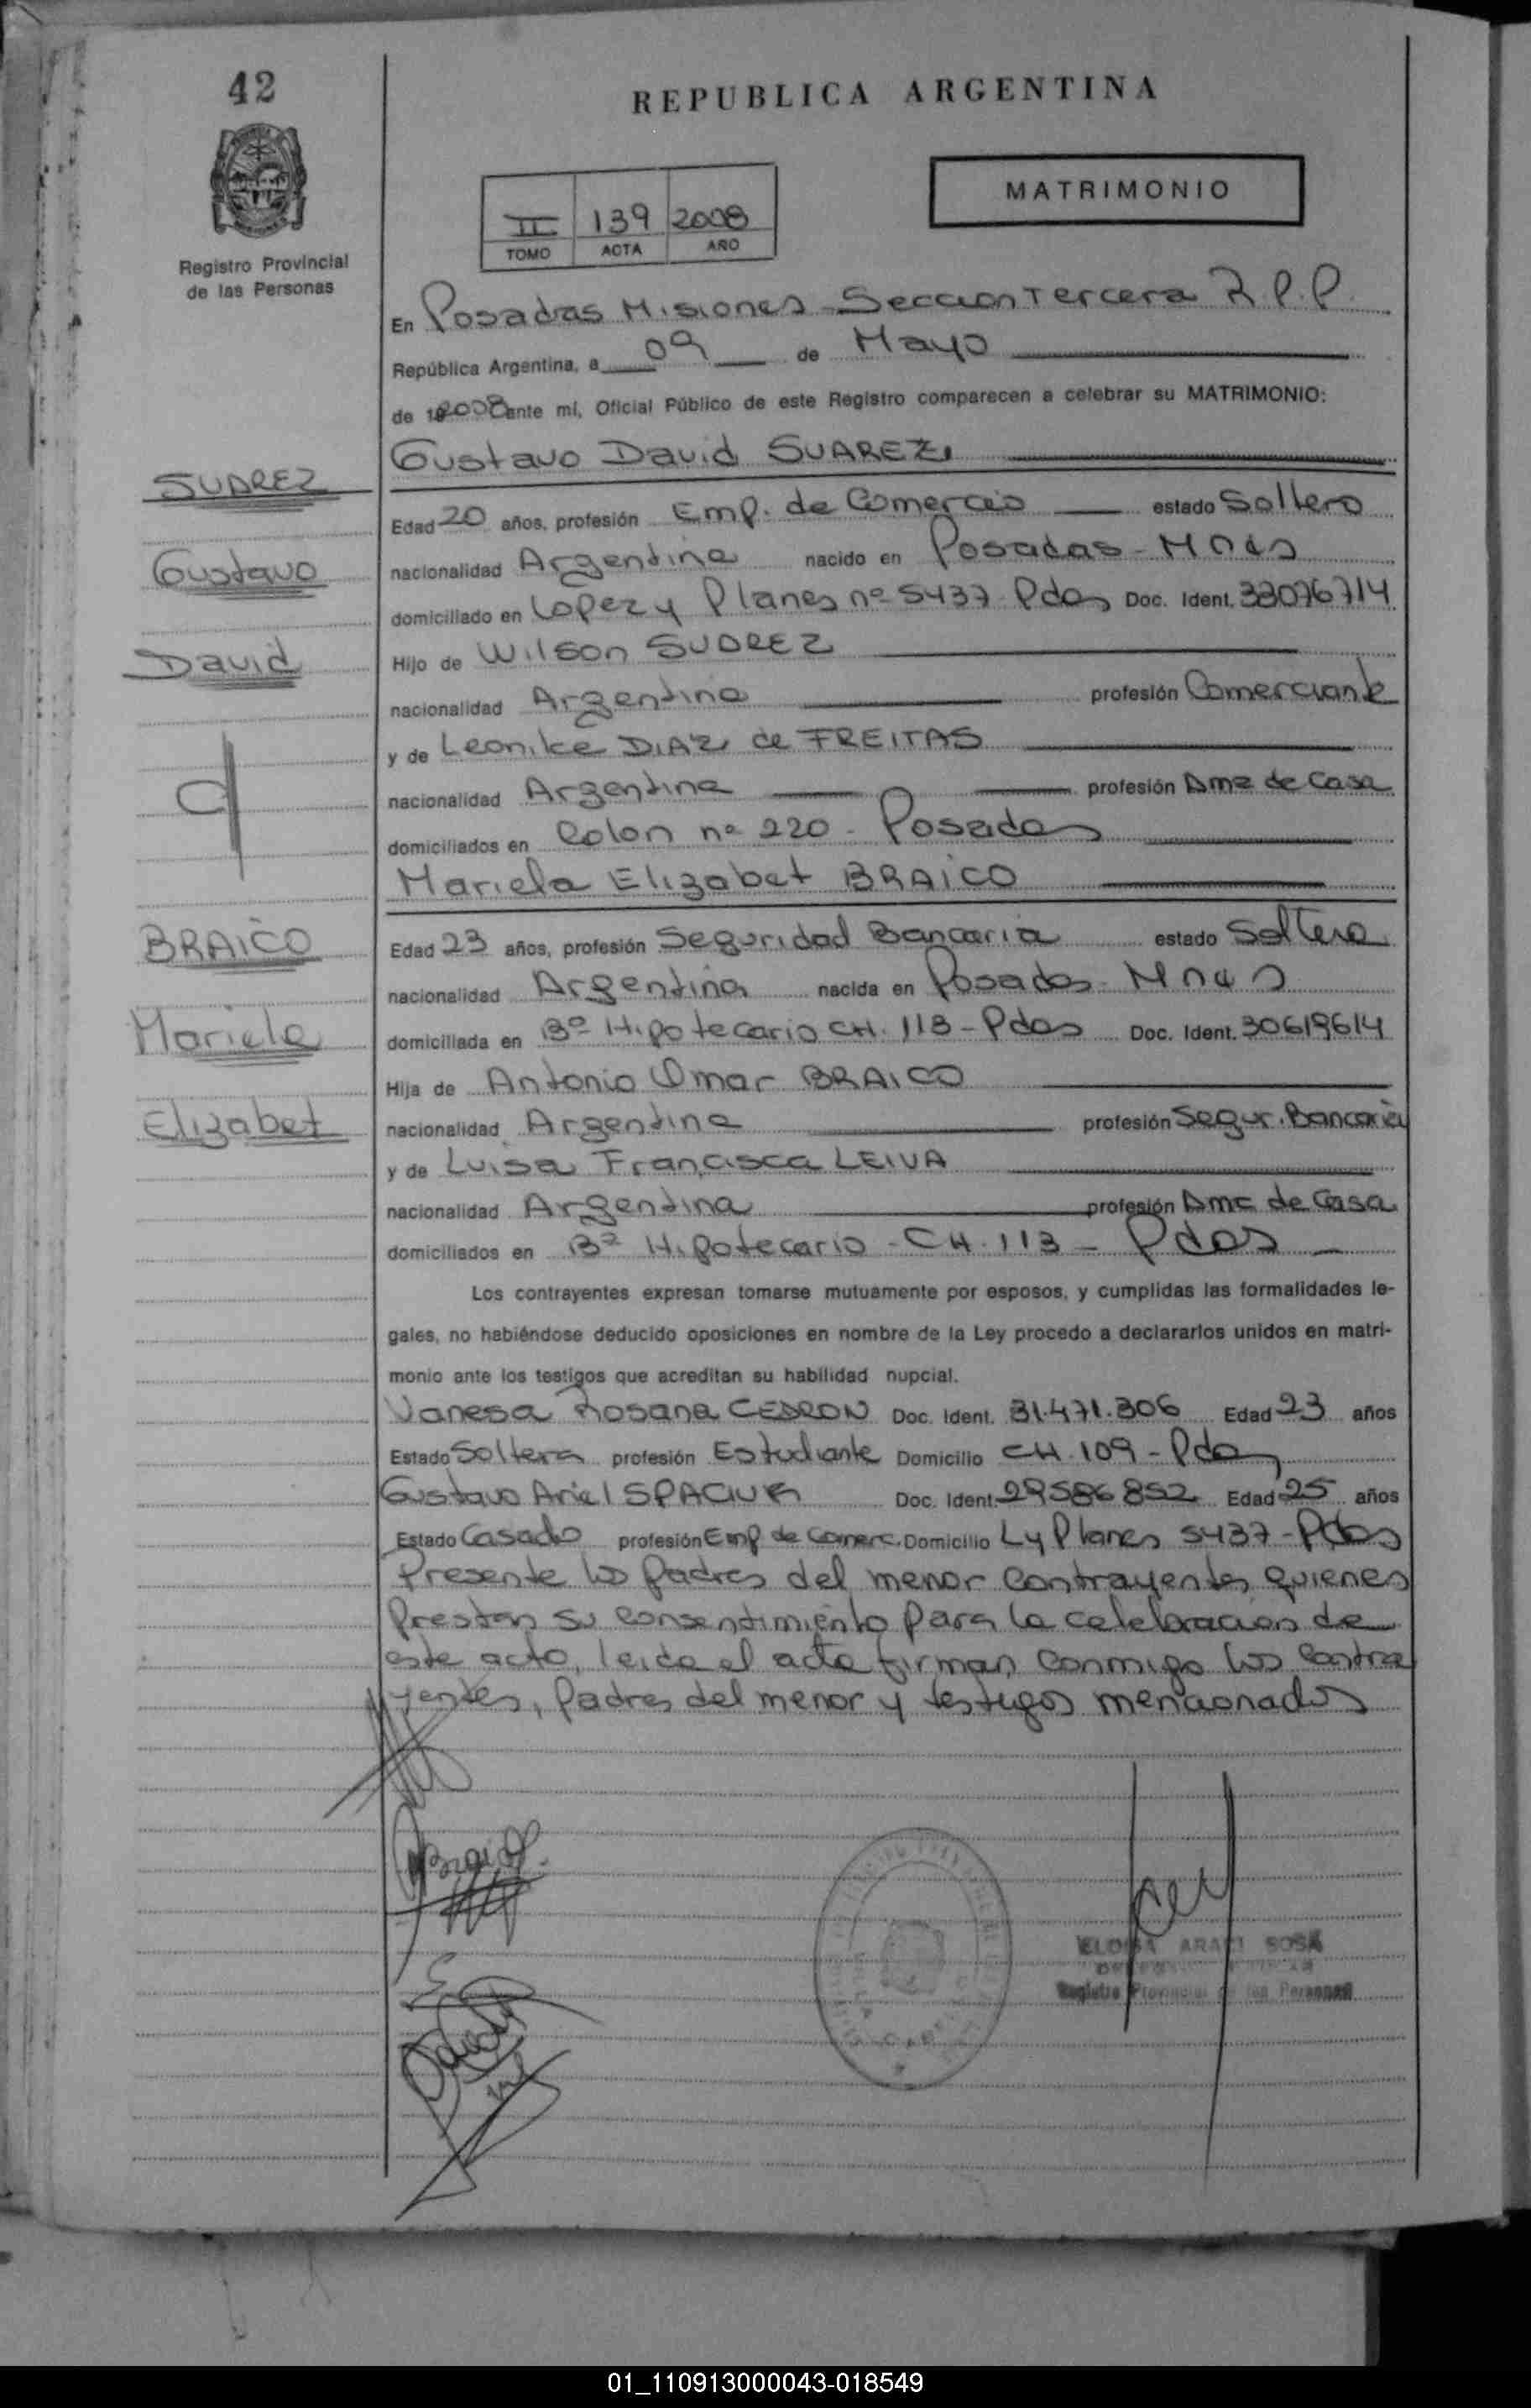 42
REPUBLICA ARGENTINA
MATRIMONIO
II 139 2008
TOMO ACTA AÑO
Registro Provincial
de las Personas
En Posadas Misiones - Seccion Tercera R.P.P.
República Argentina, a 09 de Mayo
de 2008 ante mí, Oficial Público de este Registro comparecen a celebrar su MATRIMONIO:
Gustavo David SUAREZ
SUAREZ
Edad 20 años, profesión Emp. de Comercio estado Soltero
Gustavo
nacionalidad Argentina nacido en Posadas - Mnes
domiciliado en Lopez y Planes nº 5437 Pdas Doc. Ident. 33076714
David
Hijo de Wilson SUAREZ
nacionalidad Argentina profesión Comerciante
y de Leonike DIAZ de FREITAS
nacionalidad Argentina profesión Ama de Casa
domiciliados en Colon nº 220 - Posadas
Mariela Elizabet BRAICO
BRAICO
Edad 23 años, profesión Seguridad Bancaria estado Soltera
nacionalidad Argentina nacida en Posadas - Mnes
Mariela
domiciliada en Bº Hipotecario CH. 113 - Pdas Doc. Ident. 30619614
Hija de Antonio Omar BRAICO
Elizabet
nacionalidad Argentina profesión Segur. Bancaria
y de Luisa Francisca LEIVA
nacionalidad Argentina profesión Ama de Casa
domiciliados en Bº Hipotecario - CH. 113 - Pdas
Los contrayentes expresan tomarse mutuamente por esposos, y cumplidas las formalidades le-
gales, no habiéndose deducido oposiciones en nombre de la Ley procedo a declararlos unidos en matri-
monio ante los testigos que acreditan su habilidad nupcial.
Vanesa Rosana CEDRON Doc. Ident. 31.471.306 Edad 23 años
Estado Soltera profesión Estudiante Domicilio CH. 109 - Pdas
Gustavo Ariel Doc. Ident. 29586852 Edad 25 años
Estado Casado profesión Emp de Comerc. Domicilio L y Planes 5437 - Pdas
Presente los padres del menor contrayentes quienes
prestan su consentimiento para la celebracion de
este acto, leida el acta firman conmigo los contra
yentes, padres del menor y testigos mencionados
ELOISA ARACI SOSA
Registro Provincial de las Personas
01_110913000043-018549